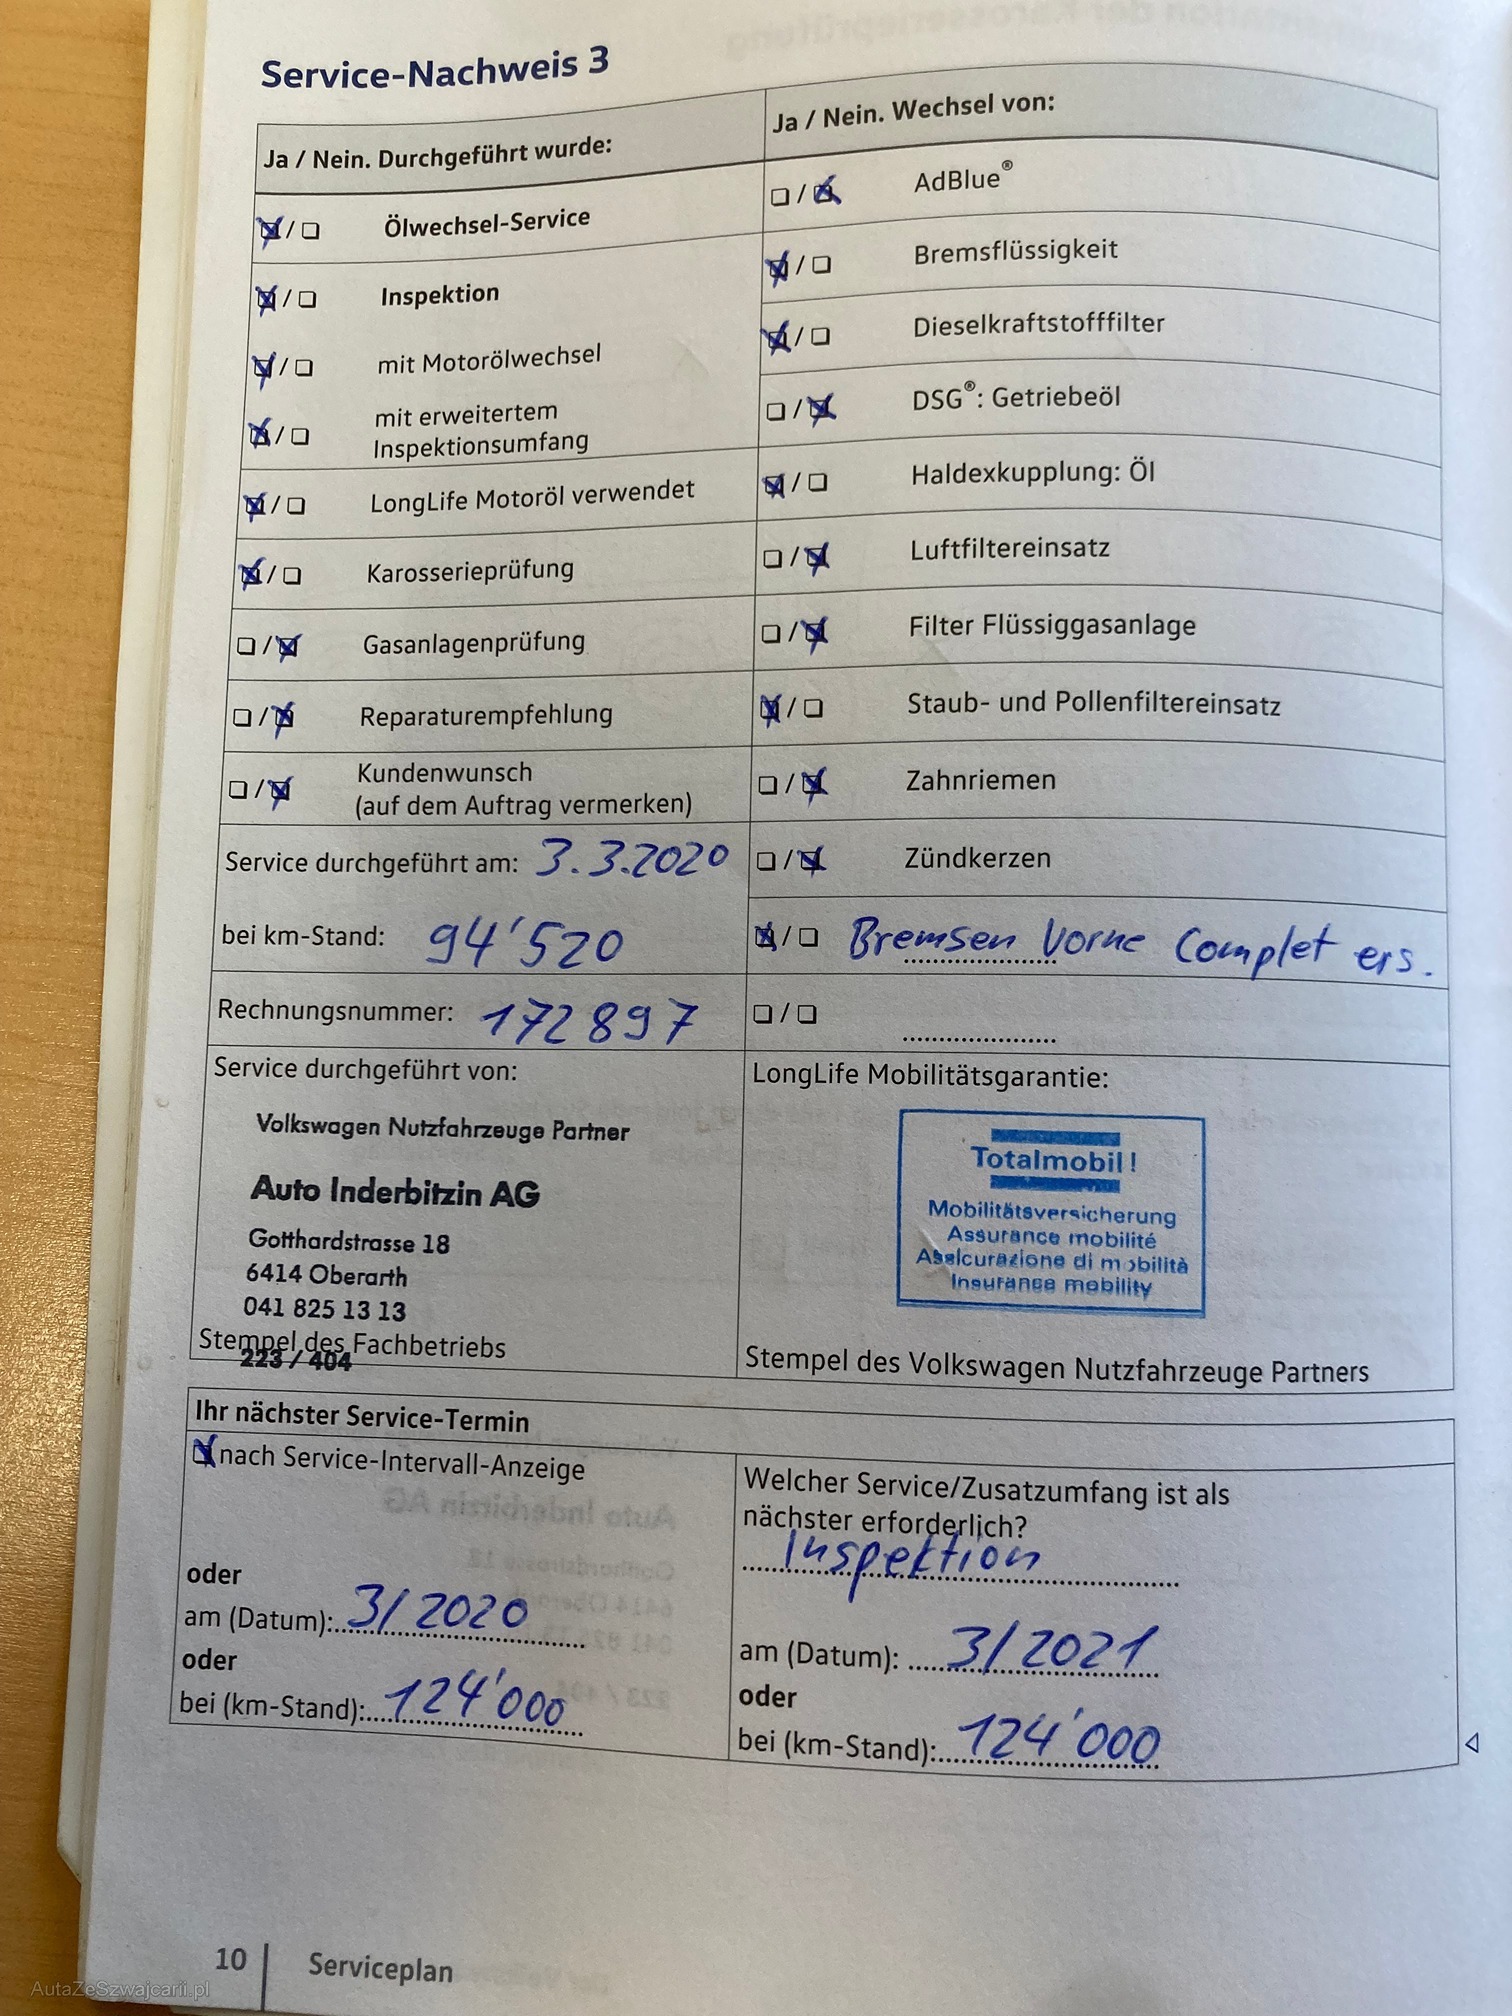 Service-Nachweis 3
Ja / Nein. Durchgeführt wurde:
☒ / ☐ Ölwechsel-Service
☒ / ☐ Inspektion
☒ / ☐ mit Motorölwechsel
☒ / ☐ mit erweitertem
Inspektionsumfang
☒ / ☐ LongLife Motoröl verwendet
☒ / ☐ Karosserieprüfung
☐ / ☒ Gasanlagenprüfung
☐ / ☒ Reparaturempfehlung
☐ / ☒ Kundenwunsch
(auf dem Auftrag vermerken)
Service durchgeführt am: 3.3.2020
bei km-Stand: 94'520
Rechnungsnummer: 172897
Ja / Nein. Wechsel von:
☐ / ☒ AdBlue®
☒ / ☐ Bremsflüssigkeit
☒ / ☐ Dieselkraftstofffilter
☐ / ☒ DSG®: Getriebeöl
☒ / ☐ Haldexkupplung: Öl
☐ / ☒ Luftfiltereinsatz
☐ / ☒ Filter Flüssiggasanlage
☒ / ☐ Staub- und Pollenfiltereinsatz
☐ / ☒ Zahnriemen
☐ / ☒ Zündkerzen
☒ / ☐ Bremsen Vorne Complet ers.
☐ / ☐ ......................
Service durchgeführt von:
Volkswagen Nutzfahrzeuge Partner
Auto Inderbitzin AG
Gotthardstrasse 18
6414 Oberarth
041 825 13 13
Stempel des Fachbetriebs
223 / 404
LongLife Mobilitätsgarantie:
Totalmobil!
Mobilitätsversicherung
Assurance mobilité
Assicurazione di mobilità
Insurance mobility
Stempel des Volkswagen Nutzfahrzeuge Partners
Ihr nächster Service-Termin
☒ nach Service-Intervall-Anzeige
oder
am (Datum): 3/2020
oder
bei (km-Stand): 124'000
Welcher Service/Zusatzumfang ist als
nächster erforderlich?
Inspektion
am (Datum): 3/2021
oder
bei (km-Stand): 124'000
10 Serviceplan
AutaZeSzwajcarii.pl